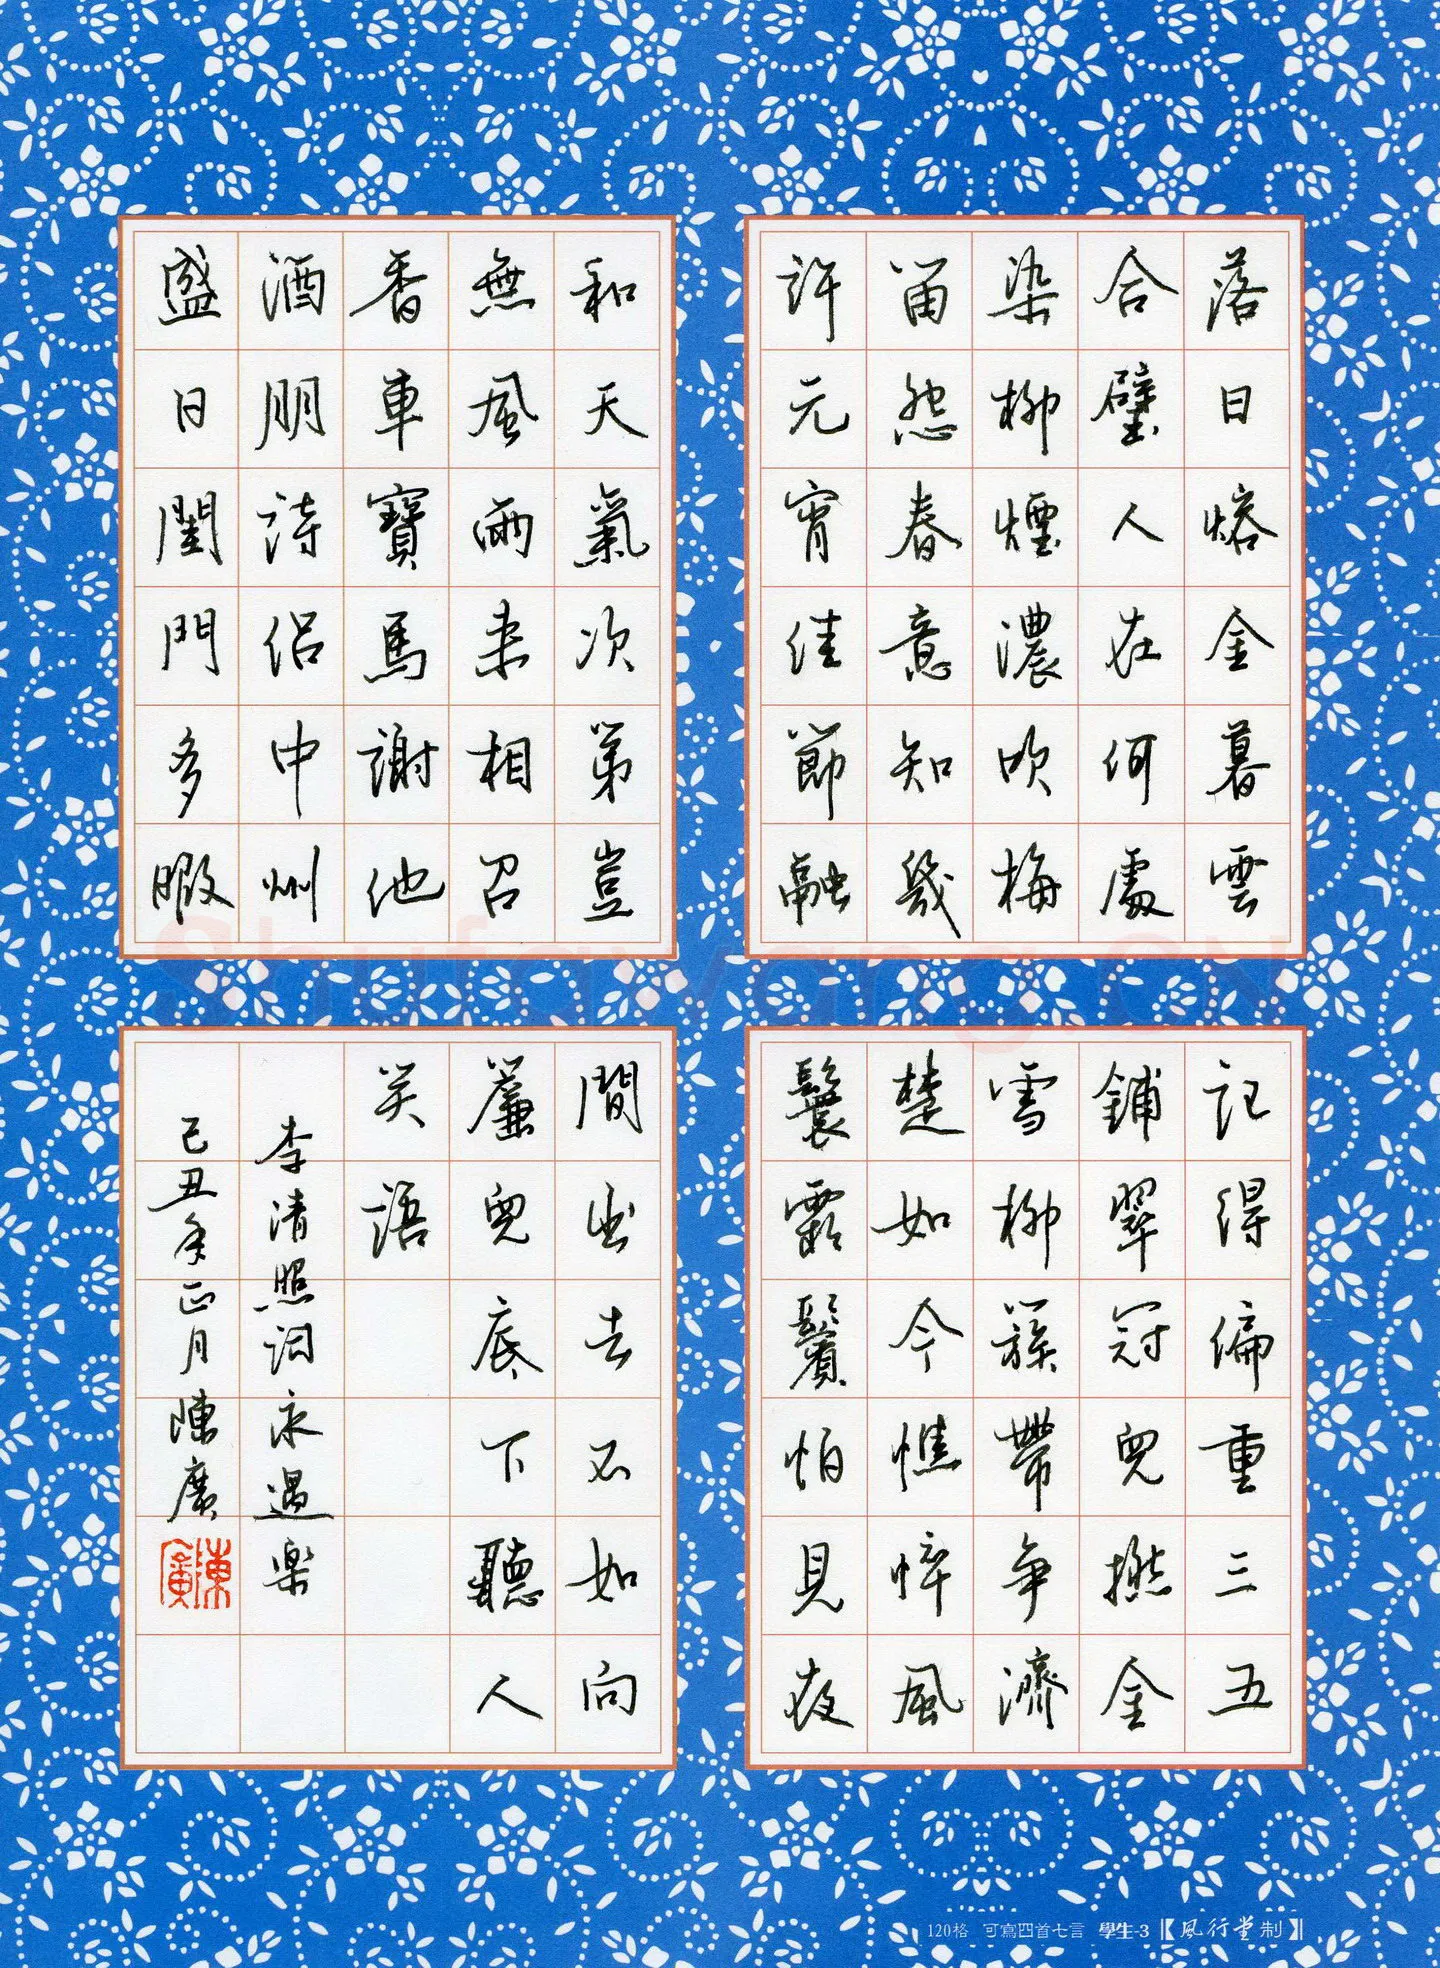 落日熔金暮雲
合璧人在何處
染柳煙濃吹梅
笛怨春意知幾
許元宵佳節融
和天氣次第豈
無風雨来相召
香車寶馬謝他
酒朋詩侶中州
盛日閨門多暇
記得偏重三五
鋪翠冠兒撚金
雪柳簇帶争濟
楚如今憔悴風
鬟霜鬢怕見夜
間出去不如向
簾兒底下聽人
笑語
李清照詞永遇樂
己丑年正月陳廣
陳廣
Shufawang.CN
120格 可寫四首七言 學生-3【風行堂制】